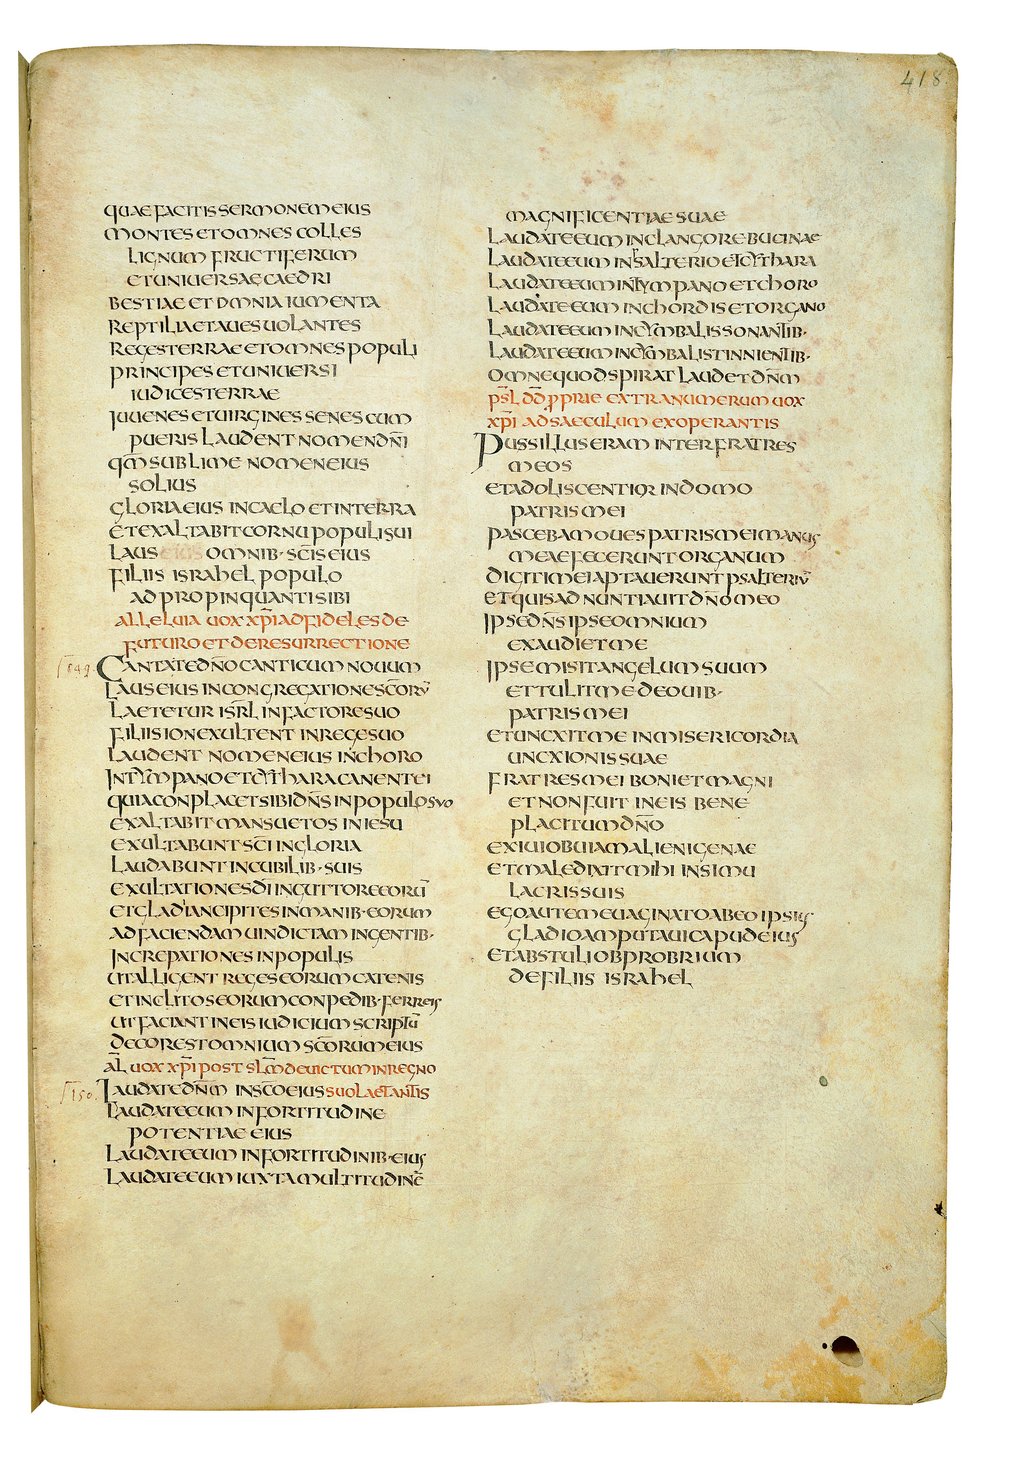 418
QUAE FACITIS SERMONEM EIUS
MONTES ET OMNES COLLES
LIGNUM FRUCTIFERUM
ET UNIUERSAE CAEDRI
BESTIAE ET OMNIA IUMENTA
REPTILIA ET AUES UOLANTES
REGES TERRAE ET OMNES POPULI
PRINCIPES ET UNIUERSI
IUDICES TERRAE
IUUENES ET UIRGINES SENES CUM
PUERIS LAUDENT NOMEN DN̄I
QM̄ SUBLIME NOMEN EIUS
SOLIUS
GLORIA EIUS IN CAELO ET IN TERRA
ET EXALTABIT CORNU POPULI SUI
LAUS EIUS OMNIB· SC̄IS EIUS
FILIIS ISRAHEL POPULO
ADPROPINQUANTI SIBI
ALLELUIA UOX XP̄I AD FIDELES DE
FUTURO ET DE RESURRECTIONE
149. CANTATE DN̄O CANTICUM NOUUM
LAUS EIUS IN CONGREGATIONE SC̄ORŪ
LAETETUR ISR̄L IN FACTORE SUO
FILII SION EXULTENT IN REGE SUO
LAUDENT NOMEN EIUS IN CHORO
IN TYMPANO ET CYTHARA CANENT EI
QUIA CONPLACET SIBI DN̄S IN POPULO SUO
EXALTABIT MANSUETOS IN IESU
EXULTABUNT SC̄I IN GLORIA
LAUDABUNT IN CUBILIB· SUIS
EXULTATIONES DI IN GUTTORE EORŪ
ET GLADI ANCIPITES IN MANIB· EORUM
AD FACIENDAM UINDICTAM IN GENTIB·
INCREPATIONES IN POPULIS
UT ALLIGENT REGES EORUM CATENIS
ET INCLITOS EORUM CONPEDIB· FERREIS
UT FACIANT IN EIS IUDICIUM SCRIPTŪ
DECOR EST OMNIUM SC̄ORUM EIUS
AL̄ UOX XP̄I POST SL̄M DEUICTUM IN REGNO
150. LAUDATE DN̄M IN SC̄O EIUS SUO LAETANTIS
LAUDATE EUM IN FORTITUDINE
POTENTIAE EIUS
LAUDATE EUM IN FORTITUDINIB· EIUS
LAUDATE EUM IUXTA MULTITUDINĒ
MAGNIFICENTIAE SUAE
LAUDATE EUM IN CLANGORE BUCINAE
LAUDATE EUM IN PSALTERIO ET CYTHARA
LAUDATE EUM IN TYMPANO ET CHORO
LAUDATE EUM IN CHORDIS ET ORGANO
LAUDATE EUM IN CYMBALIS SONANTIB·
LAUDATE EUM IN CYMBALIS TINNIENTIB·
OMNE QUOD SPIRAT LAUDET DN̄M
PSL̄ DD̄ PROPRIE EXTRA NUMERUM UOX
XP̄I AD SAECULUM EXOPERANTIS
PUSSILLUS ERAM INTER FRATRES
MEOS
ET ADOLISCENTIOR IN DOMO
PATRIS MEI
PASCEBAM OUES PATRIS MEI MANUS
MEAE FECERUNT ORGANUM
DIGITI MEI APTAUERUNT PSALTERIŪ
ET QUIS ADNUNTIAUIT DN̄O MEO
IPSE DN̄S IPSE OMNIUM
EXAUDIET ME
IPSE MISIT ANGELUM SUUM
ET TULIT ME DE OUIB·
PATRIS MEI
ET UNCXIT ME IN MISERICORDIA
UNCXIONIS SUAE
FRATRES MEI BONI ET MAGNI
ET NON FUIT IN EIS BENE
PLACITUM DN̄O
EXIUI OBUIAM ALIENIGENAE
ET MALEDIXIT MIHI IN SIMU
LACRIS SUIS
EGO AUTEM EUAGINATO AB EO IPSIUS
GLADIO AMPUTAUI CAPUD EIUS
ET ABSTULI OBPROBRIUM
DE FILIIS ISRAHEL